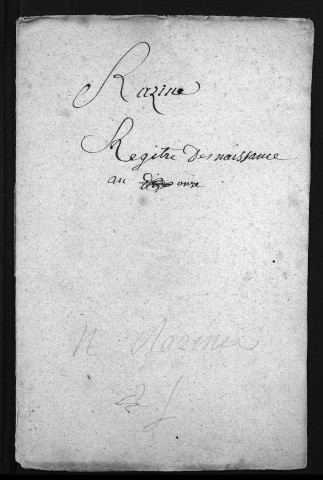 Razine
Regitre Des naissance
an onze
N Razine